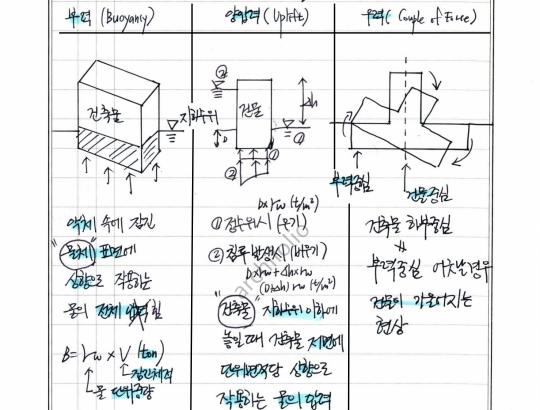 부력 (Buoyancy)
양압력 (Uplift)
우력 (Couple of Force)
건축물
지하수위
건물
Δh
D
①
②
부력중심
건물중심
액체 속에 잠긴
"물체" 표면에
상향으로 작용하는
물의 전체 힘
B = rw × V (ton)
잠긴체적
물 단위중량
D×rw (t/m²)
① 정수위시 (우기)
D×rw + Δh×rw
(D+Δh) rw (t/m²)
"건축물" 지하수위 이하에
놓일때 건축물 저면에
단위면적당 상향으로
작용하는 물의 압력
건축물 하부중심
부력중심 어긋날경우
건물이 기울어지는
현상
archifolio